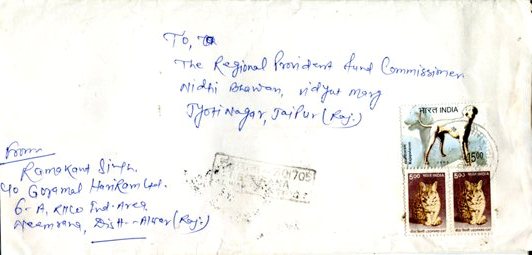 To,
The Regional Provident Fund Commissioner
Nidhi Bhawan, Vidyut Marg
Jyoti Nagar, Jaipur (Raj.)
भारत INDIA
15.00
5.00 भारत INDIA
5.00 भारत INDIA
LEOPARD CAT
LEOPARD CAT
From
Ramakant Singh
C/o Gopamal Hariram Ltd.
6-A, RIICO Ind-Area
Neemrana, Distt.-Alwar (Raj.)